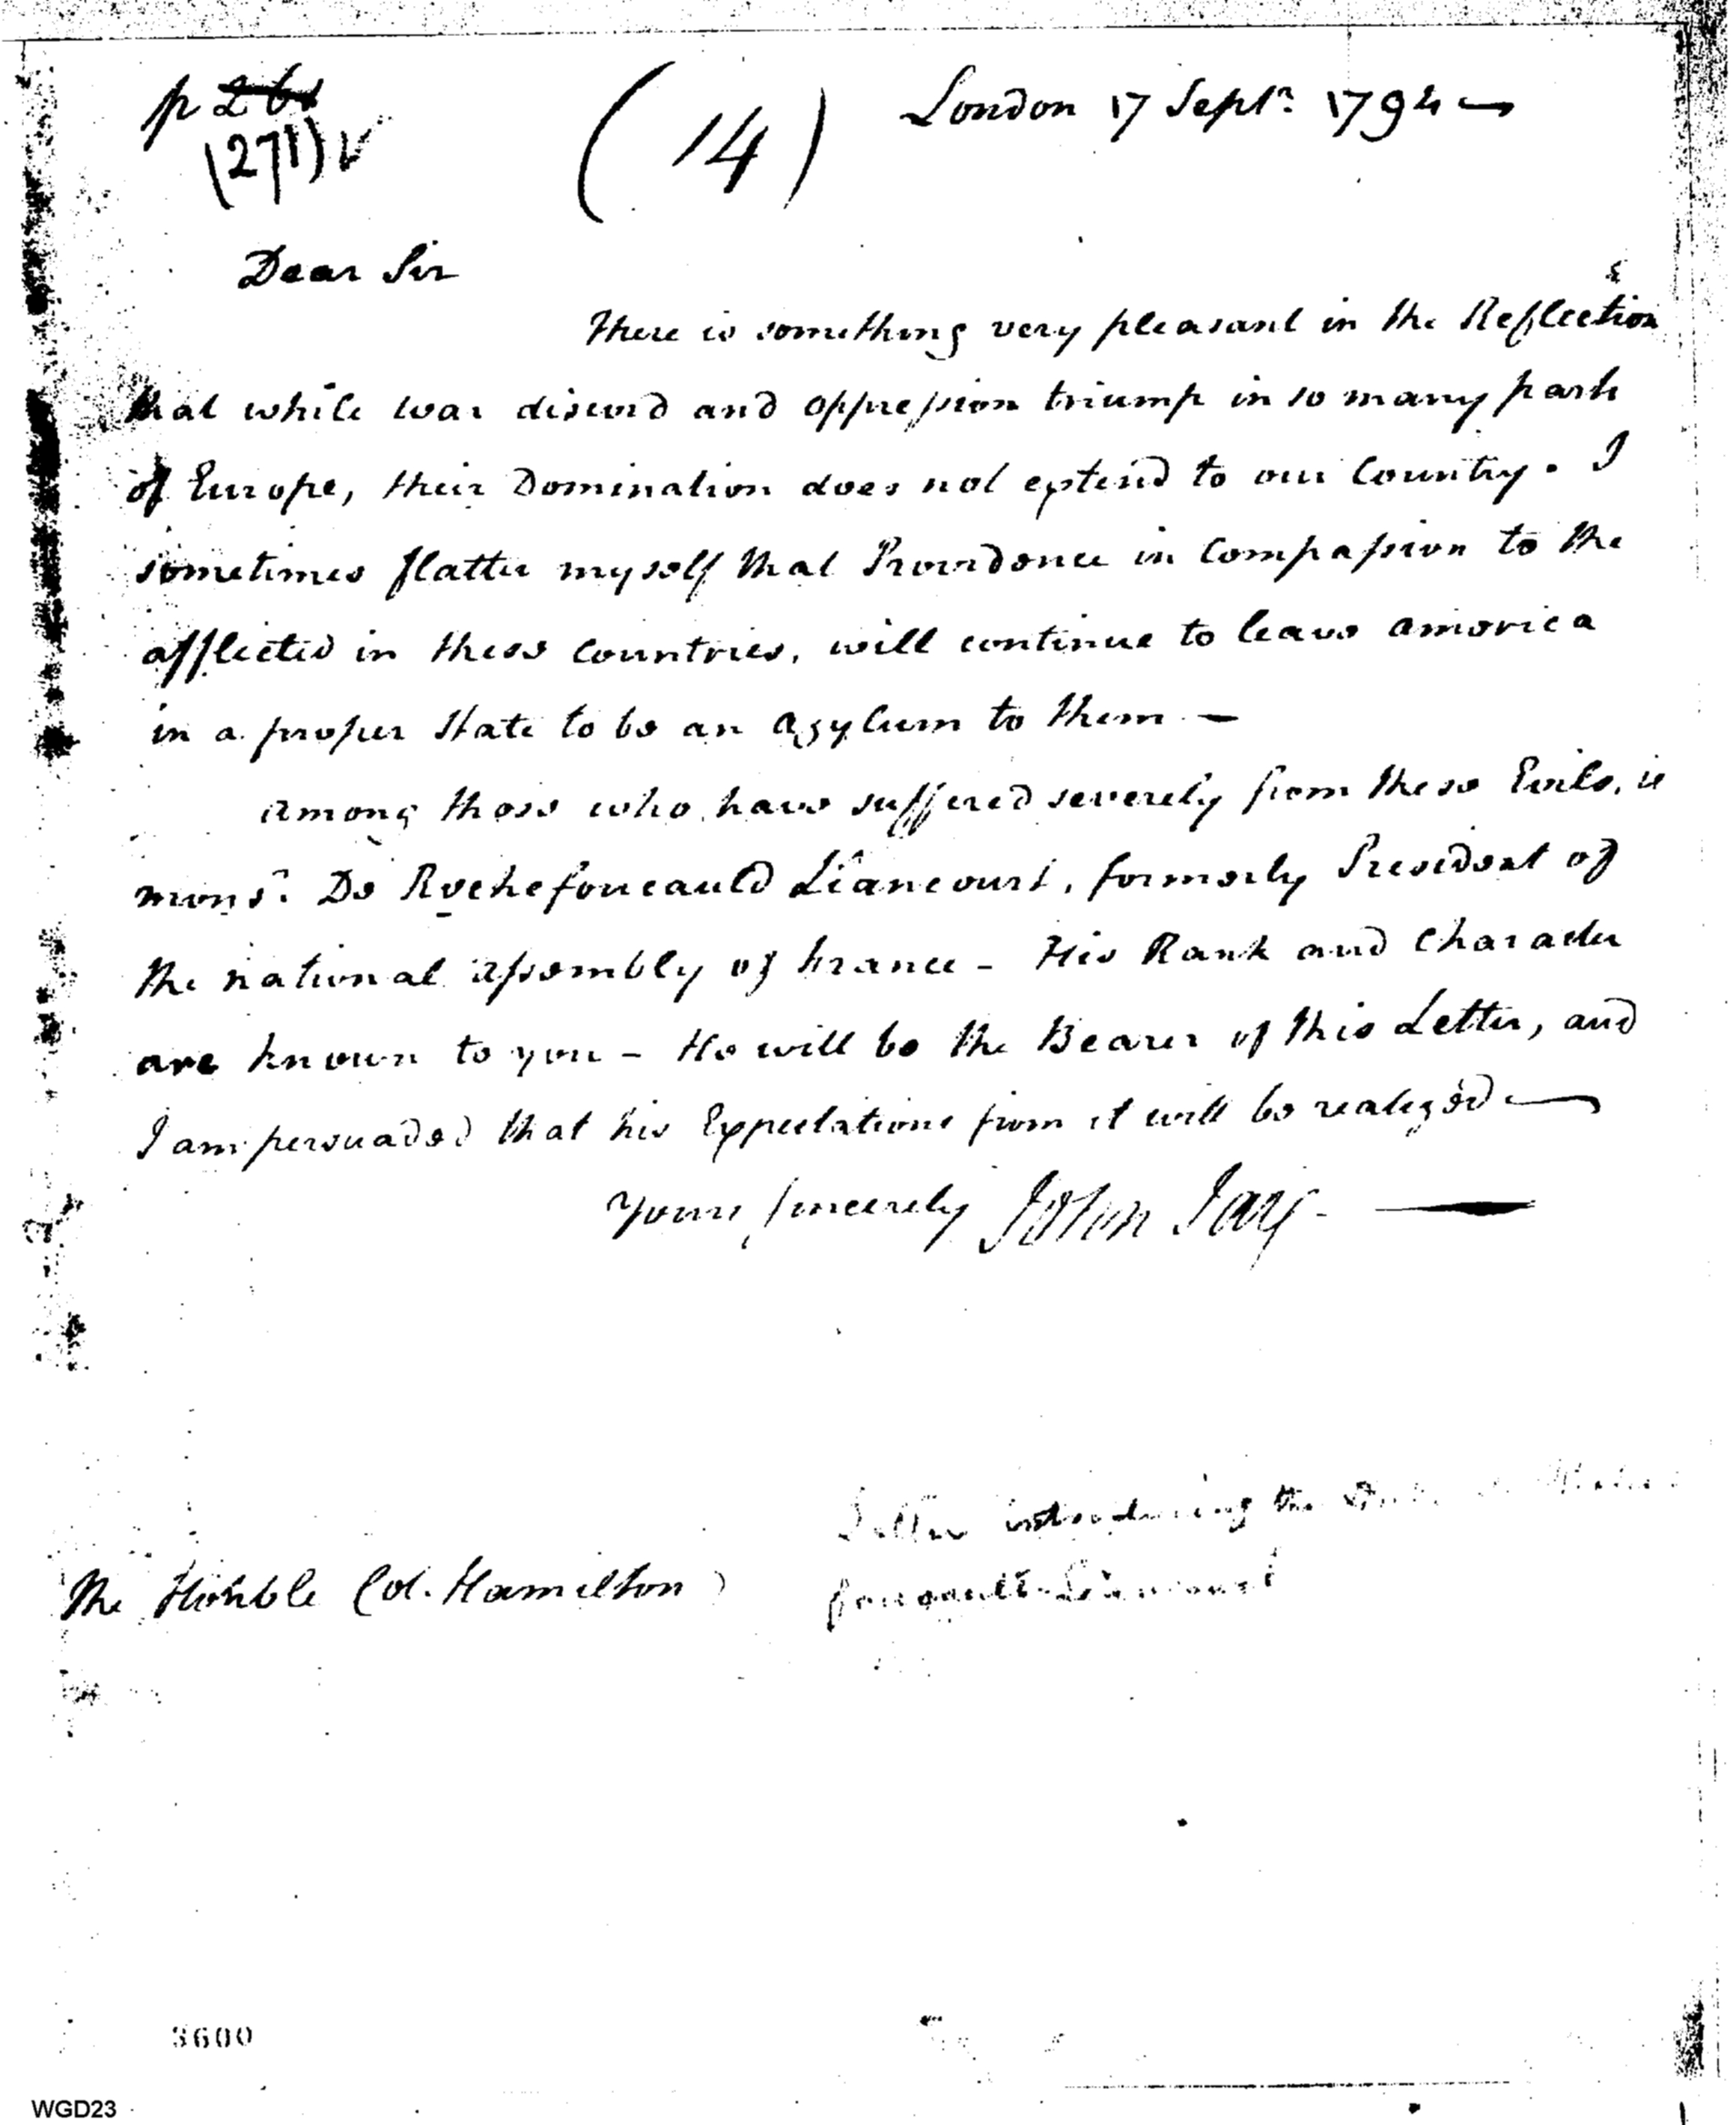 p 261
(271) v
(14)
London 17 Septr. 1794 —
Dear Sir
There is something very pleasant in the Reflection
that while war discord and oppression triump in so many parts
of Europe, their Domination does not extend to our Country. I
sometimes flatter myself that Providence in Compassion to the
afflicted in these Countries, will continue to leave america
in a proper State to be an asylum to them —
among those who have suffered severely from these Evils, is
monsr. De Rochefoucauld Liancourt, formerly President of
the national assembly of France – His Rank and Character
are known to you – He will be the Bearer of this Letter, and
I am persuaded that his Expectations from it will be realized —
Yours sincerely John Jay —
Letter introducing the
foucault-Liancourt
The Honble Col. Hamilton
3600
WGD23